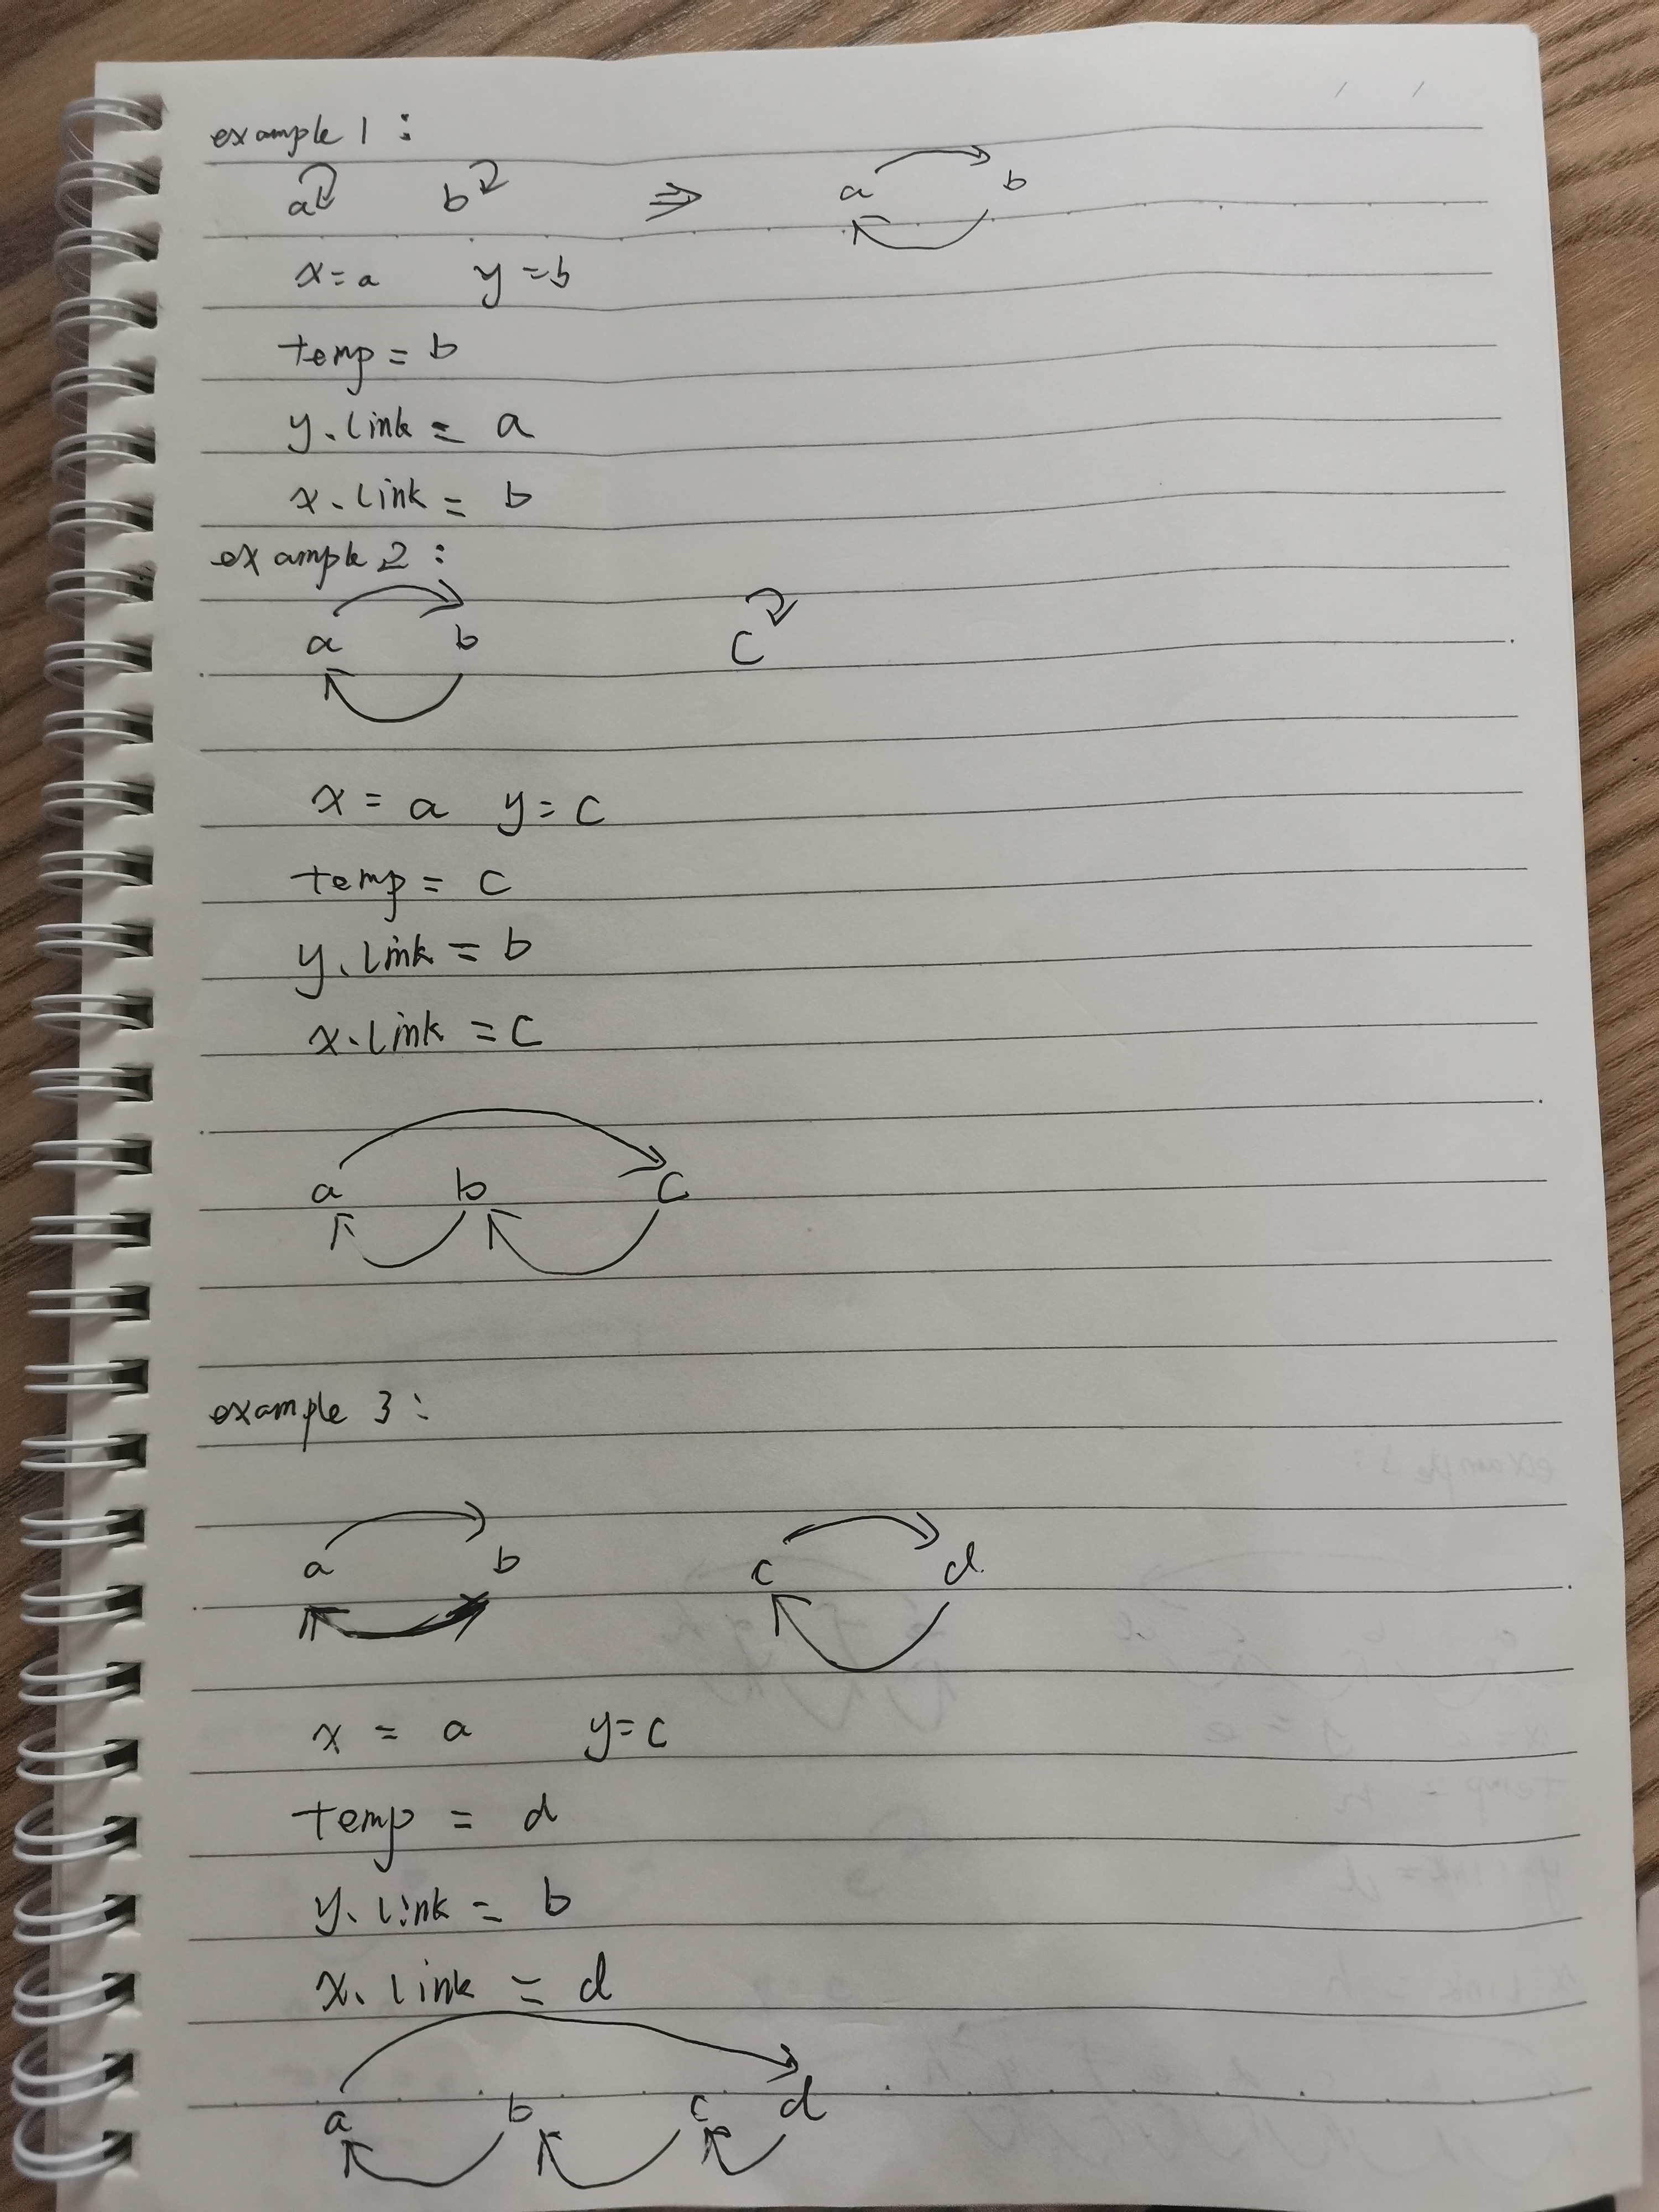 example 1 :
a b ⇒ a b
x = a y = b
temp = b
y. link = a
x. link = b
example 2 :
a b c
x = a y = c
temp = c
y. link = b
x. link = c
a b c
example 3 :
a b c d
x = a y = c
temp = d
y. link = b
x. link = d
a b c d